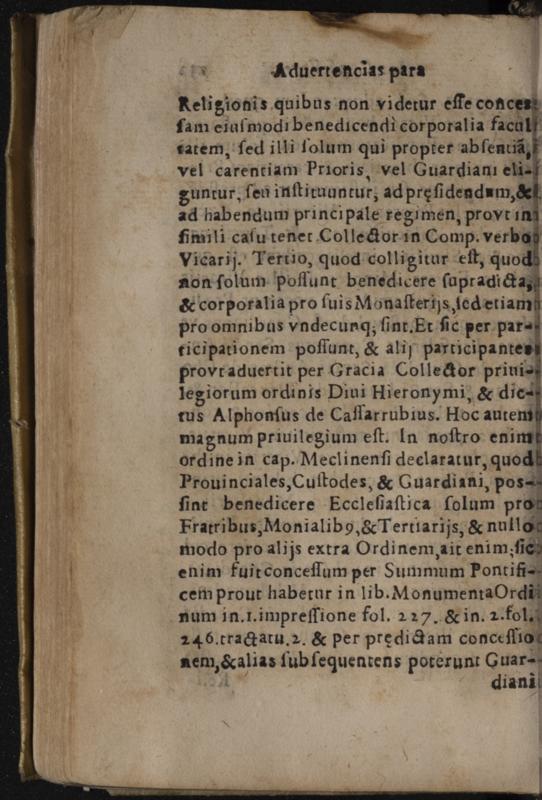 Aduertencias para
Religionis quibus non videtur eſſe conceſ-
ſam eiuſmodi benedicendi corporalia facul
tatem, ſed illi ſolum qui propter abſentiã,
vel carentiam Prioris, vel Guardiani eli-
guntur, ſeu inſtituuntur, ad pręſidendum, &
ad habendum principale regimen, provt in
ſimili caſu tenet Collector in Comp. verbo
Vicarij. Tertio, quod colligitur eſt, quod
non ſolum poſſunt benedicere ſupradicta,
& corporalia pro ſuis Monaſterijs, ſed etiam
pro omnibus vndecunq; ſint. Et ſic per par-
ticipationem poſſunt, & alij participantes
provt aduertit per Gracia Collector priui-
legiorum ordinis Diui Hieronymi, & dic-
tus Alphonſus de Caſſarrubius. Hoc autem
magnum priuilegium eſt. In noſtro enim
ordine in cap. Meclinenſi declaratur, quod
Prouinciales, Cuſtodes, & Guardiani, poſ-
ſint benedicere Eccleſiaſtica ſolum pro
Fratribus, Monialib9, & Tertiarijs, & nullo
modo pro alijs extra Ordinem, ait enim; ſic
enim fuit conceſſum per Summum Pontifi-
cem prout habetur in lib. Monumenta Ordi
num in. 1. impreſſione fol. 227. & in. 2. fol.
246. tractatu. 2. & per prędictam conceſſio
nem, & alias ſubſequentens poterunt Guar-
diani